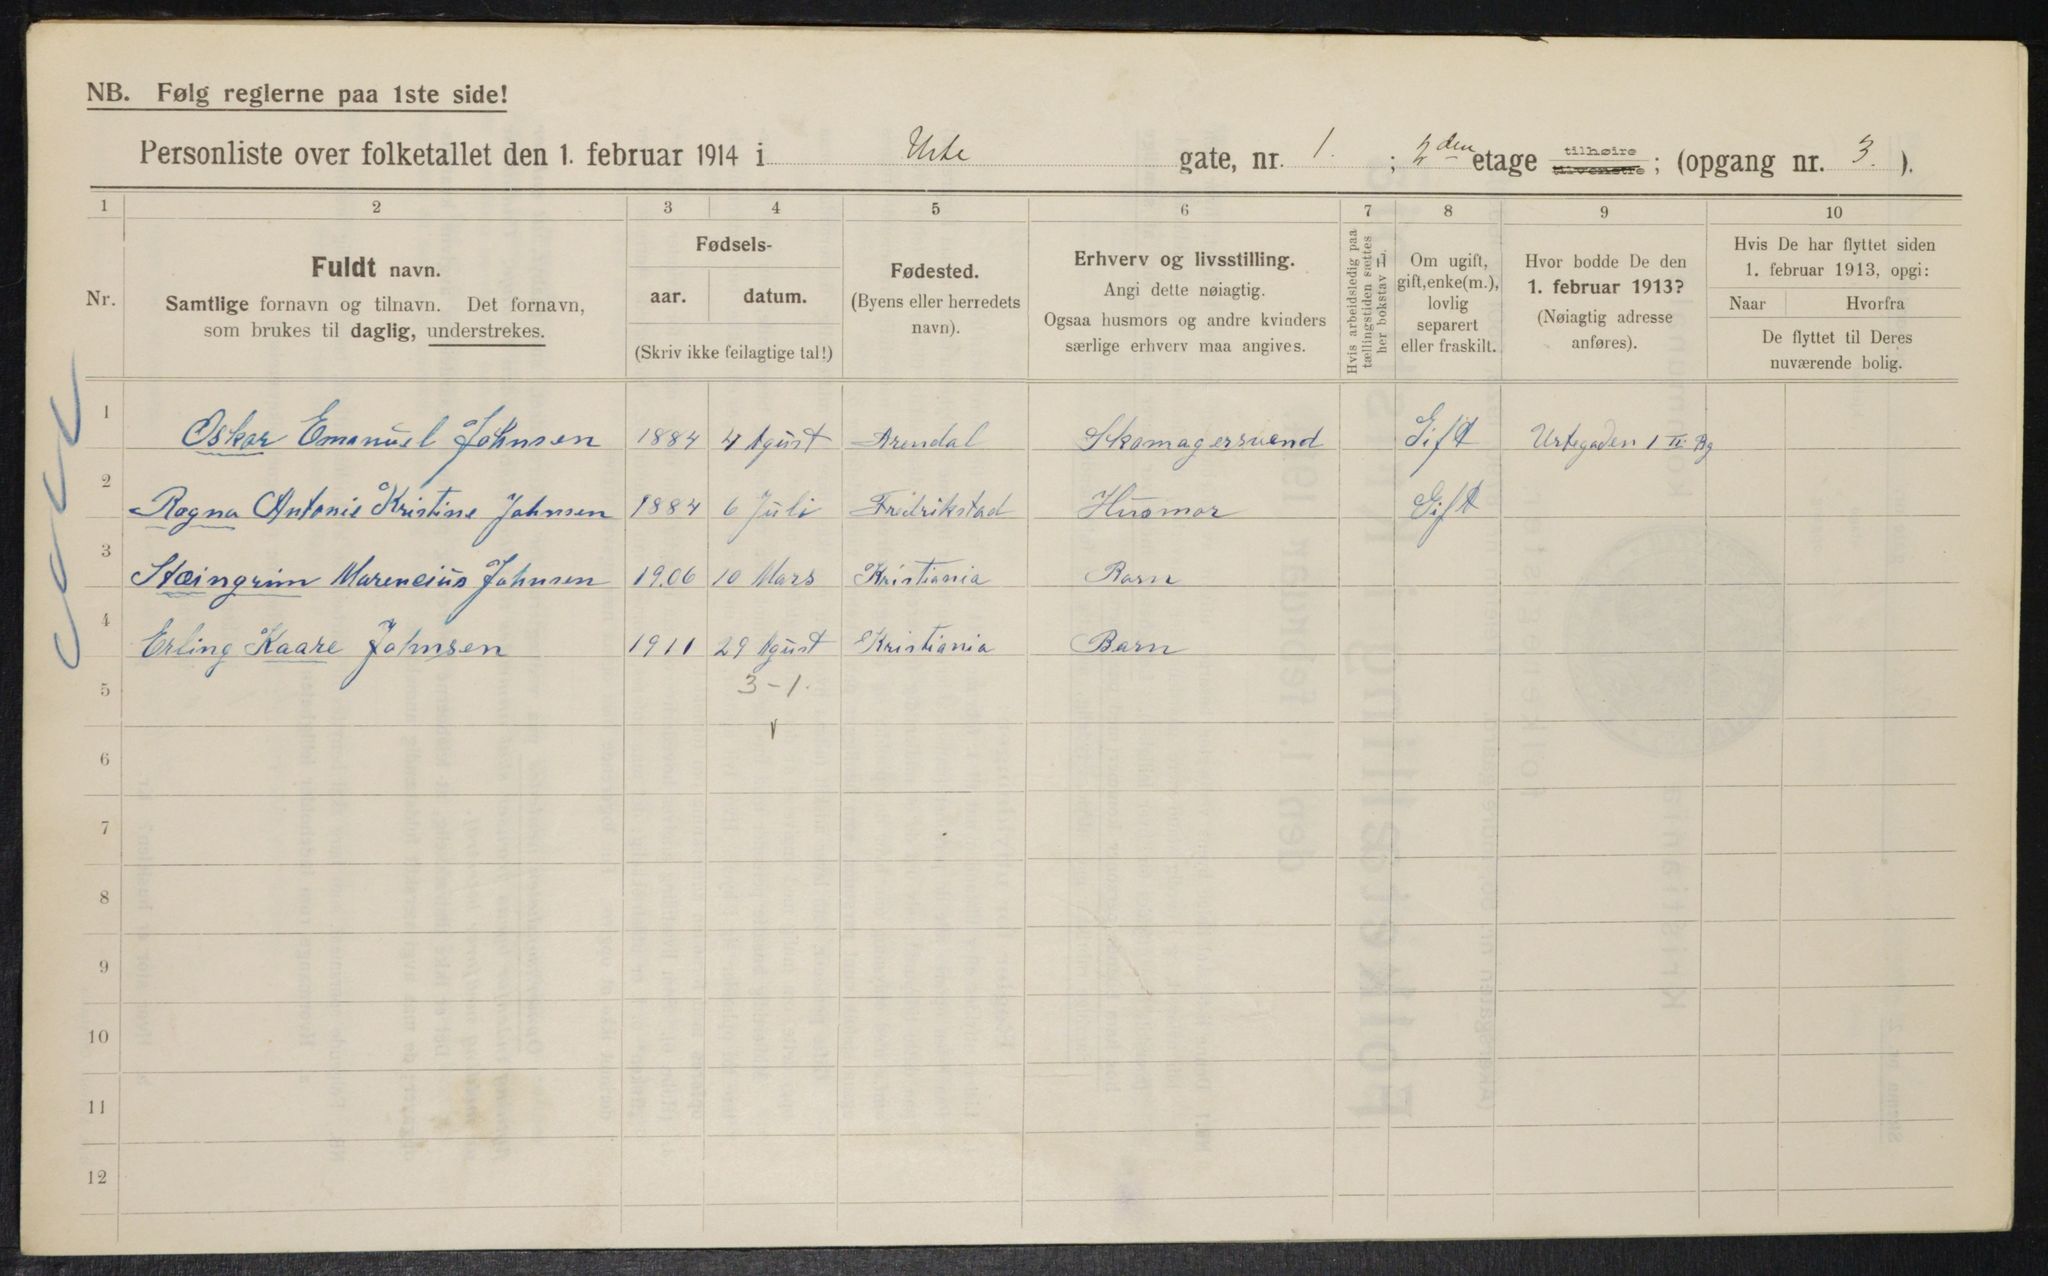 NB. Følg reglerne paa 1ste side!
Personliste over folketallet den 1. februar 1914 i Urte gate, nr. 1. ; 2den etage tilhøire tilvenstre ; (opgang nr. 3. ).
1 2 3 4 5 6 7 8 9 10
Nr.
Fuldt navn.
Samtlige fornavn og tilnavn. Det fornavn,
som brukes til daglig, understrekes.
Fødsels-
aar. datum.
(Skriv ikke feilagtige tal!)
Fødested.
(Byens eller herredets
navn).
Erhverv og livsstilling.
Angi dette nøiagtig.
Ogsaa husmors og andre kvinders
særlige erhverv maa angives.
Hvis arbeidsledig paa
tællingstiden sættes
her bokstav L.
Om ugift,
gift, enke(m.),
lovlig
separert
eller fraskilt.
Hvor bodde De den
1. februar 1913?
(Nøiagtig adresse
anføres).
Hvis De har flyttet siden
1. februar 1913, opgi:
Naar Hvorfra
De flyttet til Deres
nuværende bolig.
1 Oskar Emanuel Johnsen 1884 4 Agust Arendal Skomagersvend Gift Urtegaden 1 II Bg
2 Ragna Antonie Kristine Johnsen 1884 6 Juli Fredrikstad Husmor Gift
3 Stæingrim Marencius Johnsen 1906 10 Mars Kristiania Barn
4 Erling Kaare Johnsen 1911 29 Agust Kristiania Barn
5 3-1.
6
7
8
9
10
11
12